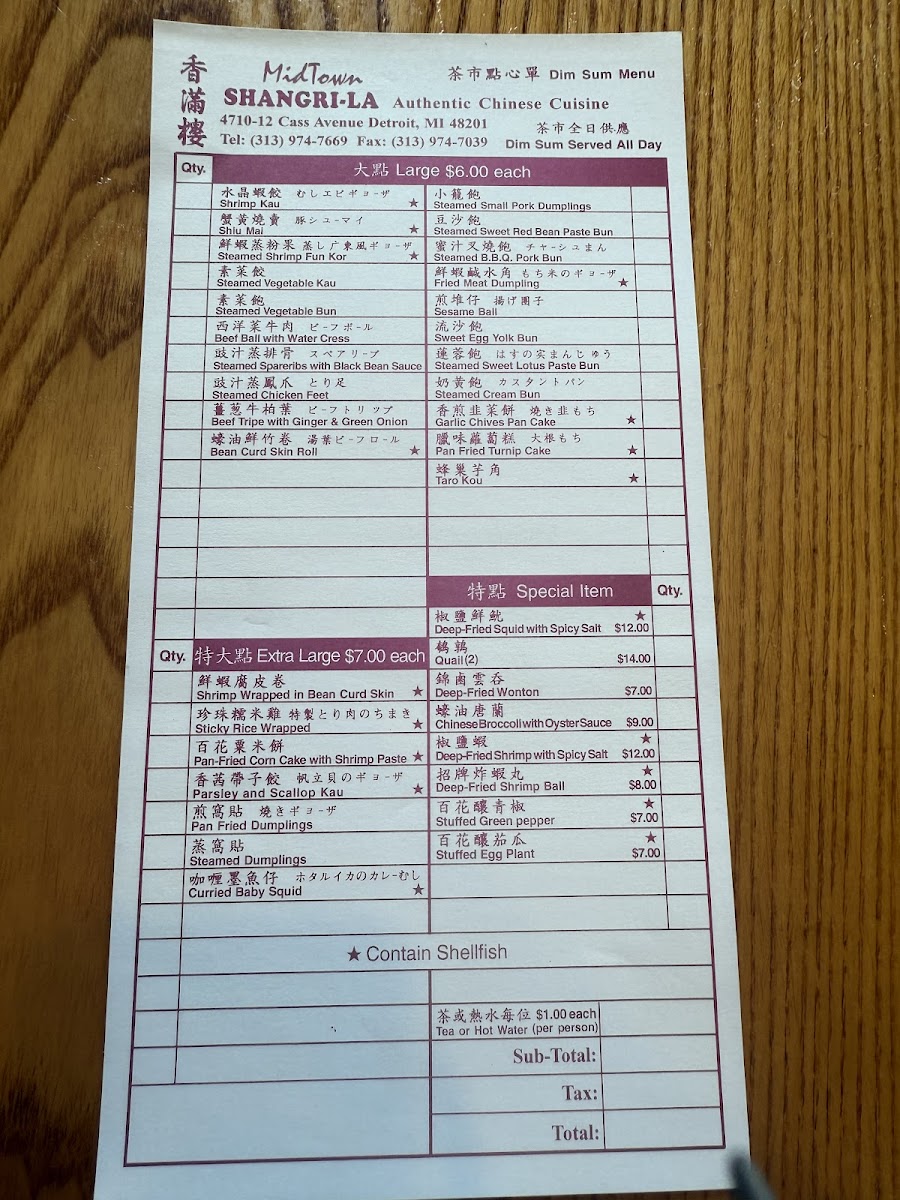 香滿樓
MidTown
SHANGRI-LA Authentic Chinese Cuisine
茶市點心單 Dim Sum Menu
4710-12 Cass Avenue Detroit, MI 48201
Tel: (313) 974-7669 Fax: (313) 974-7039
茶市全日供應
Dim Sum Served All Day
Qty.
大點 Large $6.00 each
水晶蝦餃 むしエビギョーザ
Shrimp Kau ★
蟹黃燒賣 豚シューマイ
Shiu Mai ★
鮮蝦蒸粉果 蒸し广東風ギョーザ
Steamed Shrimp Fun Kor ★
素菜餃
Steamed Vegetable Kau
素菜飽
Steamed Vegetable Bun
西洋菜牛肉 ビーフボール
Beef Ball with Water Cress
豉汁蒸排骨 スペアリーブ
Steamed Spareribs with Black Bean Sauce
豉汁蒸鳳爪 とり足
Steamed Chicken Feet
薑蔥牛柏葉 ビーフトリップ
Beef Tripe with Ginger & Green Onion
蠔油鮮竹卷 湯葉ビーフロール
Bean Curd Skin Roll ★
小籠飽
Steamed Small Pork Dumplings
豆沙飽
Steamed Sweet Red Bean Paste Bun
蜜汁叉燒飽 チャーシュまん
Steamed B.B.Q. Pork Bun
鮮蝦鹹水角 もち米のギョーザ
Fried Meat Dumpling ★
煎堆仔 揚げ團子
Sesame Ball
流沙飽
Sweet Egg Yolk Bun
蓮蓉飽 はすの実まんじゅう
Steamed Sweet Lotus Paste Bun
奶黃飽 カスタントパン
Steamed Cream Bun
香煎韭菜餅 燒き韭もち
Garlic Chives Pan Cake ★
臘味蘿蔔糕 大根もち
Pan Fried Turnip Cake ★
蜂巢芋角
Taro Kou ★
特點 Special Item
Qty.
椒鹽鮮魷 ★
Deep-Fried Squid with Spicy Salt $12.00
鵪鶉
Quail(2) $14.00
錦鹵雲吞
Deep-Fried Wonton $7.00
蠔油唐蘭
Chinese Broccoli with Oyster Sauce $9.00
椒鹽蝦 ★
Deep-Fried Shrimp with Spicy Salt $12.00
招牌炸蝦丸 ★
Deep-Fried Shrimp Ball $8.00
百花釀青椒 ★
Stuffed Green pepper $7.00
百花釀茄瓜 ★
Stuffed Egg Plant $7.00
Qty.
特大點 Extra Large $7.00 each
鮮蝦腐皮卷
Shrimp Wrapped in Bean Curd Skin ★
珍珠糯米雞 特製とり肉のちまき
Sticky Rice Wrapped ★
百花粟米餅
Pan-Fried Corn Cake with Shrimp Paste ★
香茜帶子餃 帆立貝のギョーザ
Parsley and Scallop Kau ★
煎窩貼 燒きギョーザ
Pan Fried Dumplings
蒸窩貼
Steamed Dumplings
咖喱墨魚仔 ホタルイカのカレーむし
Curried Baby Squid ★
★ Contain Shellfish
茶或熱水每位 $1.00 each
Tea or Hot Water (per person)
Sub-Total:
Tax:
Total: